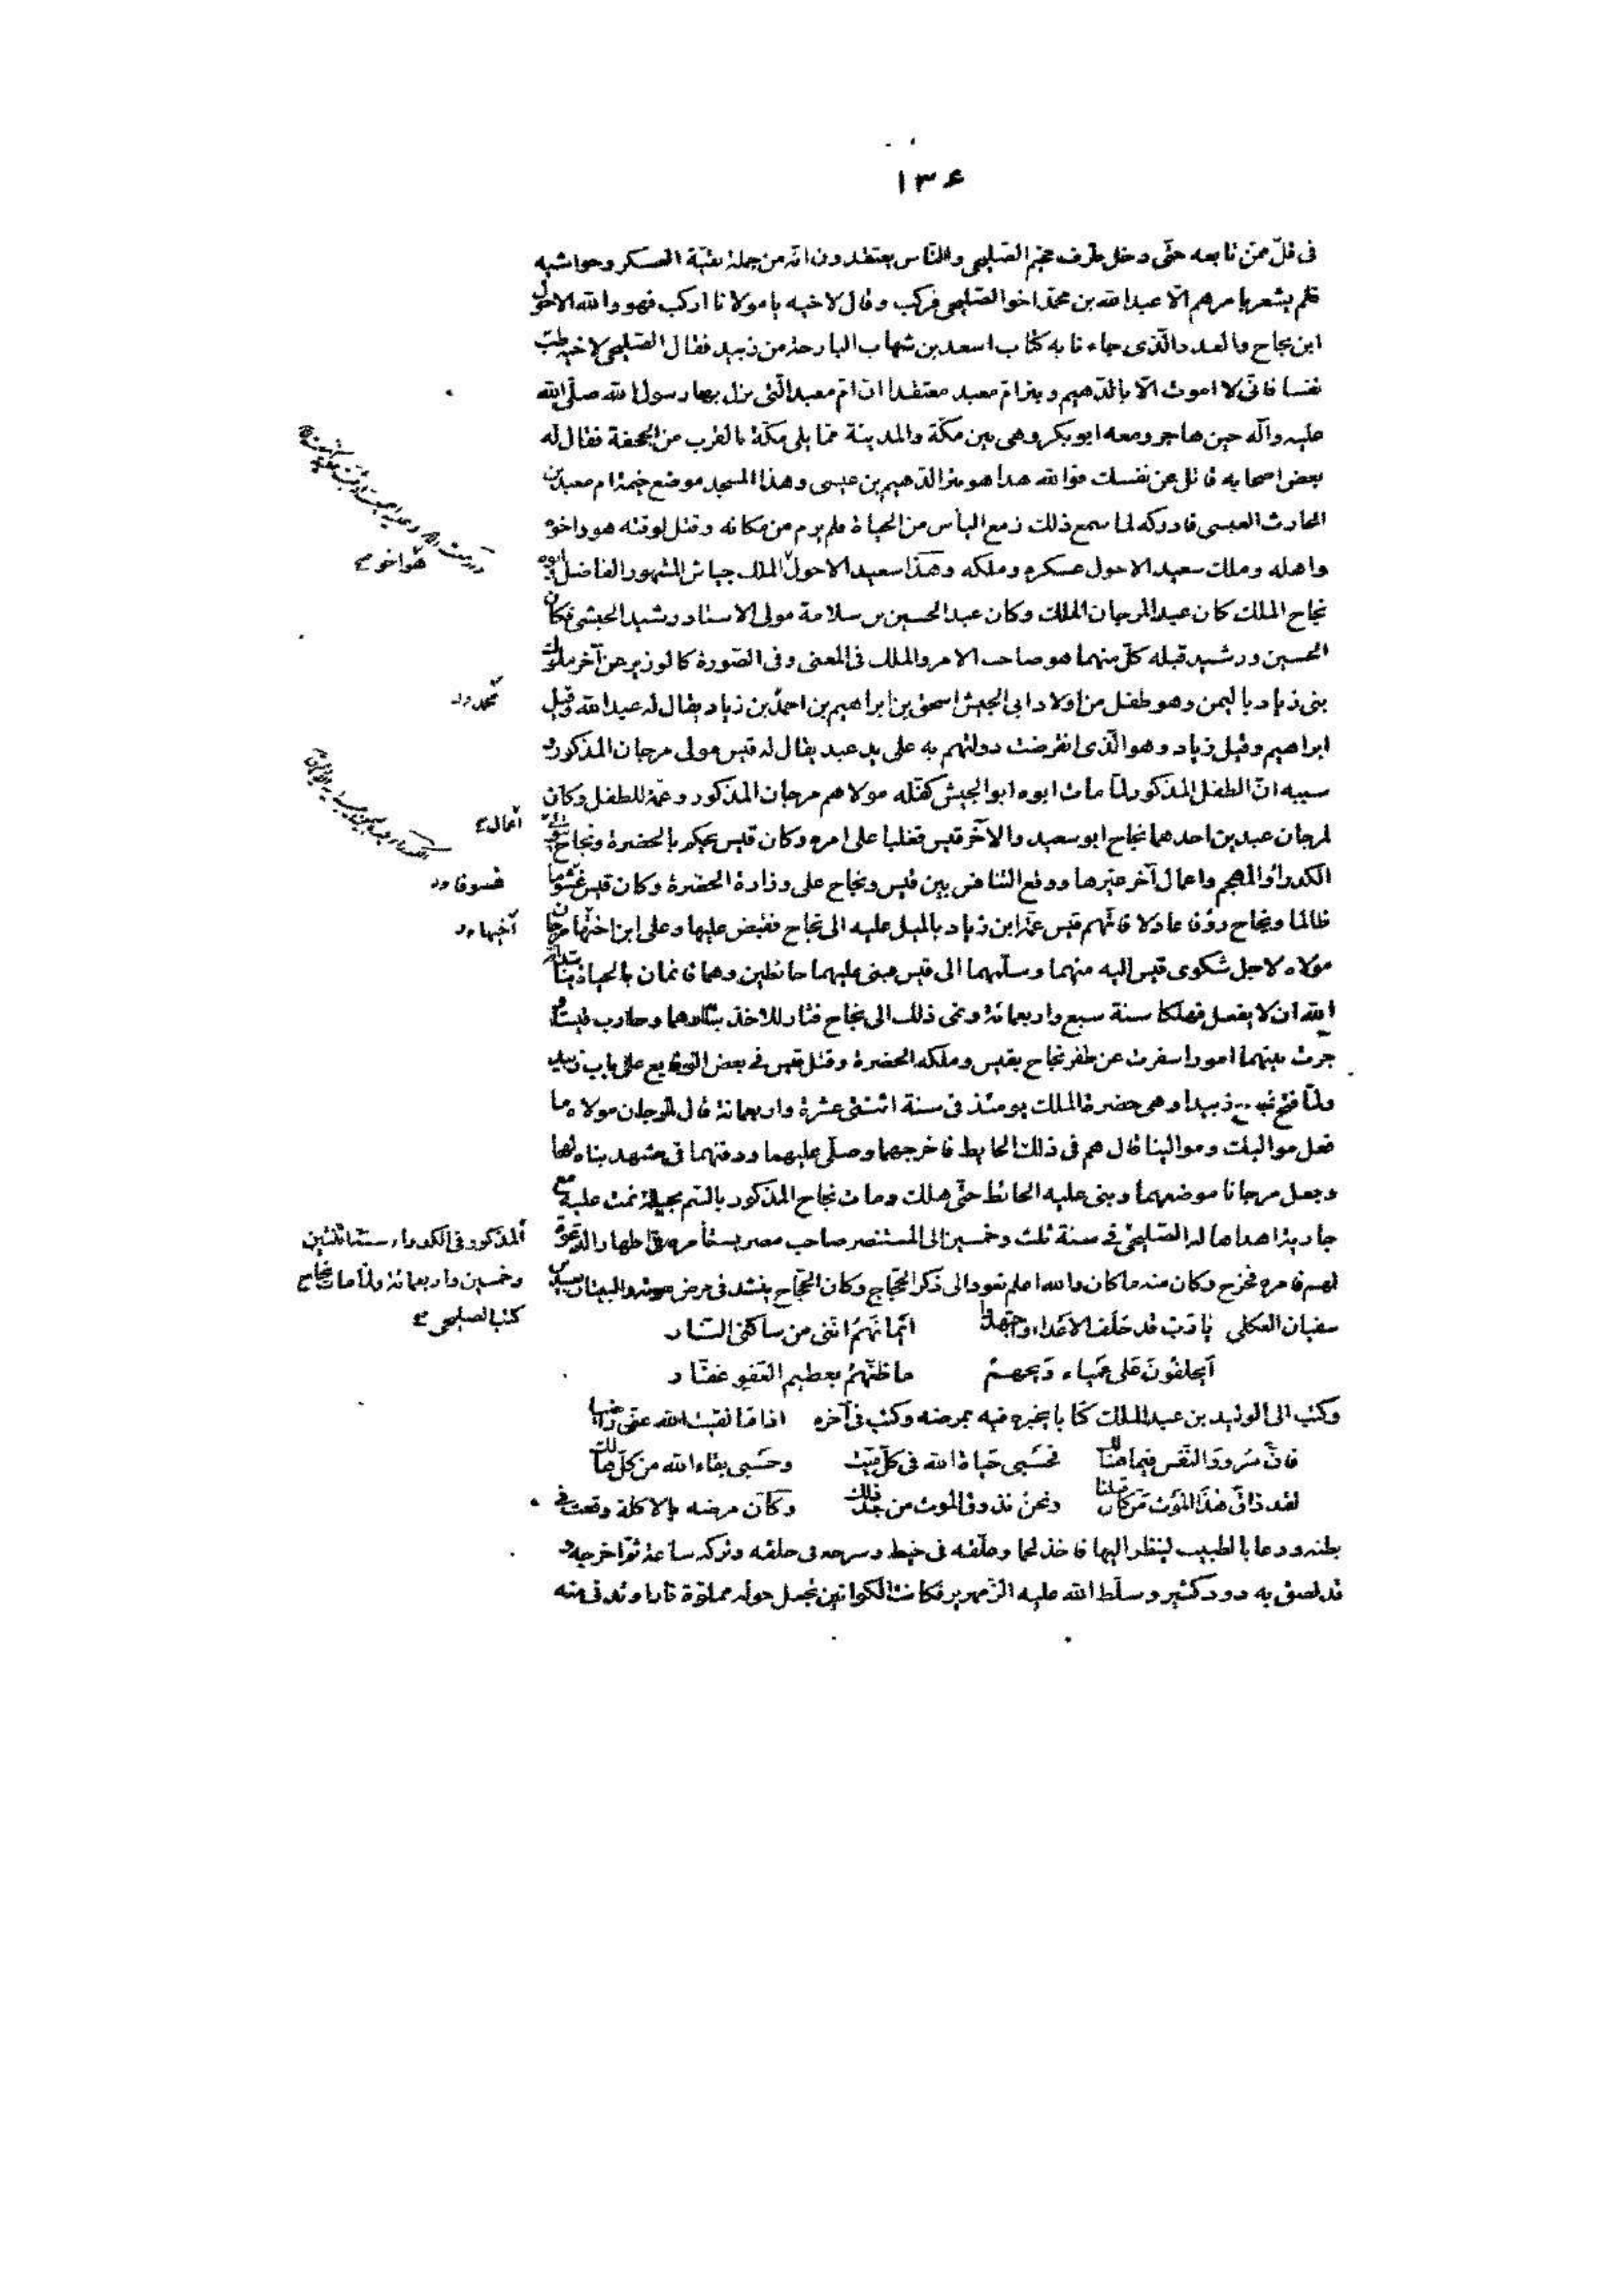 ١٣٤
فى قلّ ممّن تابعه حتّى دخل طرف مخيم الصّليحى والنّاس يعتقدون انّه من جملة بقيّة العسكر وحواشيه
فلم يشعر بامرهم الّا عبد الله بن محمّد اخو الصّليحى فركب وقال لاخيه يا مولانا اركب فهو والله الاحول
ابن نجاح والعدد الّذى جاءنا به كتاب اسعد بن شهاب البارحة من زبيد فقال الصّليحى لاخيه طب
نفسا فانّى لا اموت الّا بالدّهيم وبئر امّ معبد معتقدا انّ امّ معبد الّتى نزل بها رسول الله صلّى الله
عليه وآله حين هاجر ومعه ابو بكر وهى بين مكّة والمدينة ممّا يلى مكّة بالقرب من الجحفة فقال له
بعض اصحابه قاتل عن نفسك فوالله هذا هو بئر الدّهيم بن عيسى وهذا المسجد موضع خيمة ام معبد بن
الحارث العبسى فادركه لمّا سمع ذلك زمع اليأس من الحياة فلم يرم من مكانه وقتل لوقته هو واخوه
هو اخو
واهله وملك سعيد الاحول عسكره وملكه وهذا سعيد الاحول الملك جياش المشهور الفاضل ابوه
نجاح الملك كان عبد المرجان الملك وكان عبد الحسين بن سلامة مولى الاستاد رشيد الحبشى فكان
الحسين ورشيد قبله كلّ منهما هو صاحب الامر والملك فى المعنى وفى الصّورة كالوزير عن آخر ملوك
بنى زياد باليمن وهو طفل من اولاد ابى الجيش اسحق بن ابراهيم بن احمد بن زياد يقال له عبد الله وقيل
محمد
ابراهيم وقيل زياد وهو الّذى انقرضت دولتهم به على يد عبد يقال له قيس مولى مرجان المذكور و
سببه انّ الطفل المذكور لمّا مات ابوه ابو الجيش كفّله مولاهم مرجان المذكور وعمّة للطفل وكان
لمرجان عبدين احدهما نجاح ابو سعيد والآخر قيس فغلبا على امره وكان قيس يحكم بالحضرة ونجاح يتولى
اعمال
الكدراء والمهجم واعمال آخر غيرها ووقع التنافس بين قيس ونجاح على وزارة الحضرة وكان قيس غشوما
عسوفا
ظالما ونجاح رؤفا عادلا فاتّهم قيس عمّة ابن زياد بالميل عليه الى نجاح فقبض عليها وعلى ابن اختها مرجان
اخيها
مولاه لاجل شكوى قيس اليه منهما وسلّمهما الى قيس فبنى عليهما حائطين وهما قائمان بالحياة يناشدانه
الله ان لا يفعل فهلكا سنة سبع واربعمائة ونمى ذلك الى نجاح فثار للاخذ بثارهما وحارب قيسا و
جرت بينهما امورا سفرت عن ظفر نجاح بقيس وملكه الحضرة وقتل قيس فى بعض الوقايع على باب زبيد
ولمّا فتح نجاح زبيدا وهى حضرة الملك يومئذ فى سنة اثنتى عشرة واربعمائة قال لمرجان مولاه ما
فعل مواليك وموالينا قال هم فى ذلك الحايط فاخرجهما وصلّى عليهما ودفنهما فى مشهد بناه لهما
وجعل مرجانا موضعهما وبنى عليه الحائط حتّى هلك ومات نجاح المذكور بالسّم بحيلة تمت عليه مع
جارية اهداها له الصّليحى فى سنة ثلث وخمسين الى المستنصر صاحب مصر يستأمره فى اظهار الدّعوة
المذكور فى الكدراء سنة اثنتين
وخمسين واربعمائة ولمّا مات نجاح
كتب الصليحى
لهم فامره فخرج وكان منه ما كان والله اعلم نعود الى ذكر الحجّاج وكان الحجّاج ينشد فى مرض موته والبيتان لعبيد بن
سفيان العكلى يا ربّ قد حلف الاعداء واجتهدوا ايمانهم انّنى من ساكنى النّار
ايحلفون على عمياء ويحهم ما ظنّهم بعظيم العفو غفّار
وكتب الى الوليد بن عبد الملك كتابا يخبره فيه بمرضه وكتب فى آخره اذا ما لقيت الله عنّى راضيا
فانّ سرور النّفس فيما هنالك فحسبى حياة الله فى كلّ ميّت وحسبى بقاء الله من كلّ هالك
لقد ذاق هذا الموت من كان قبلنا ونحن نذوق الموت من بعد ذلك وكان مرضه بالاكلة وقعت فى
بطنه ودعا بالطبيب لينظر اليها فاخذ لحما وعلّقه فى خيط وسرحه فى حلقه وتركه ساعة ثمّ اخرجه و
قد لصق به دود كثير وسلّط الله عليه الزّمهرير فكانت الكوانين تجعل حوله مملوّة نارا وتدنى منه